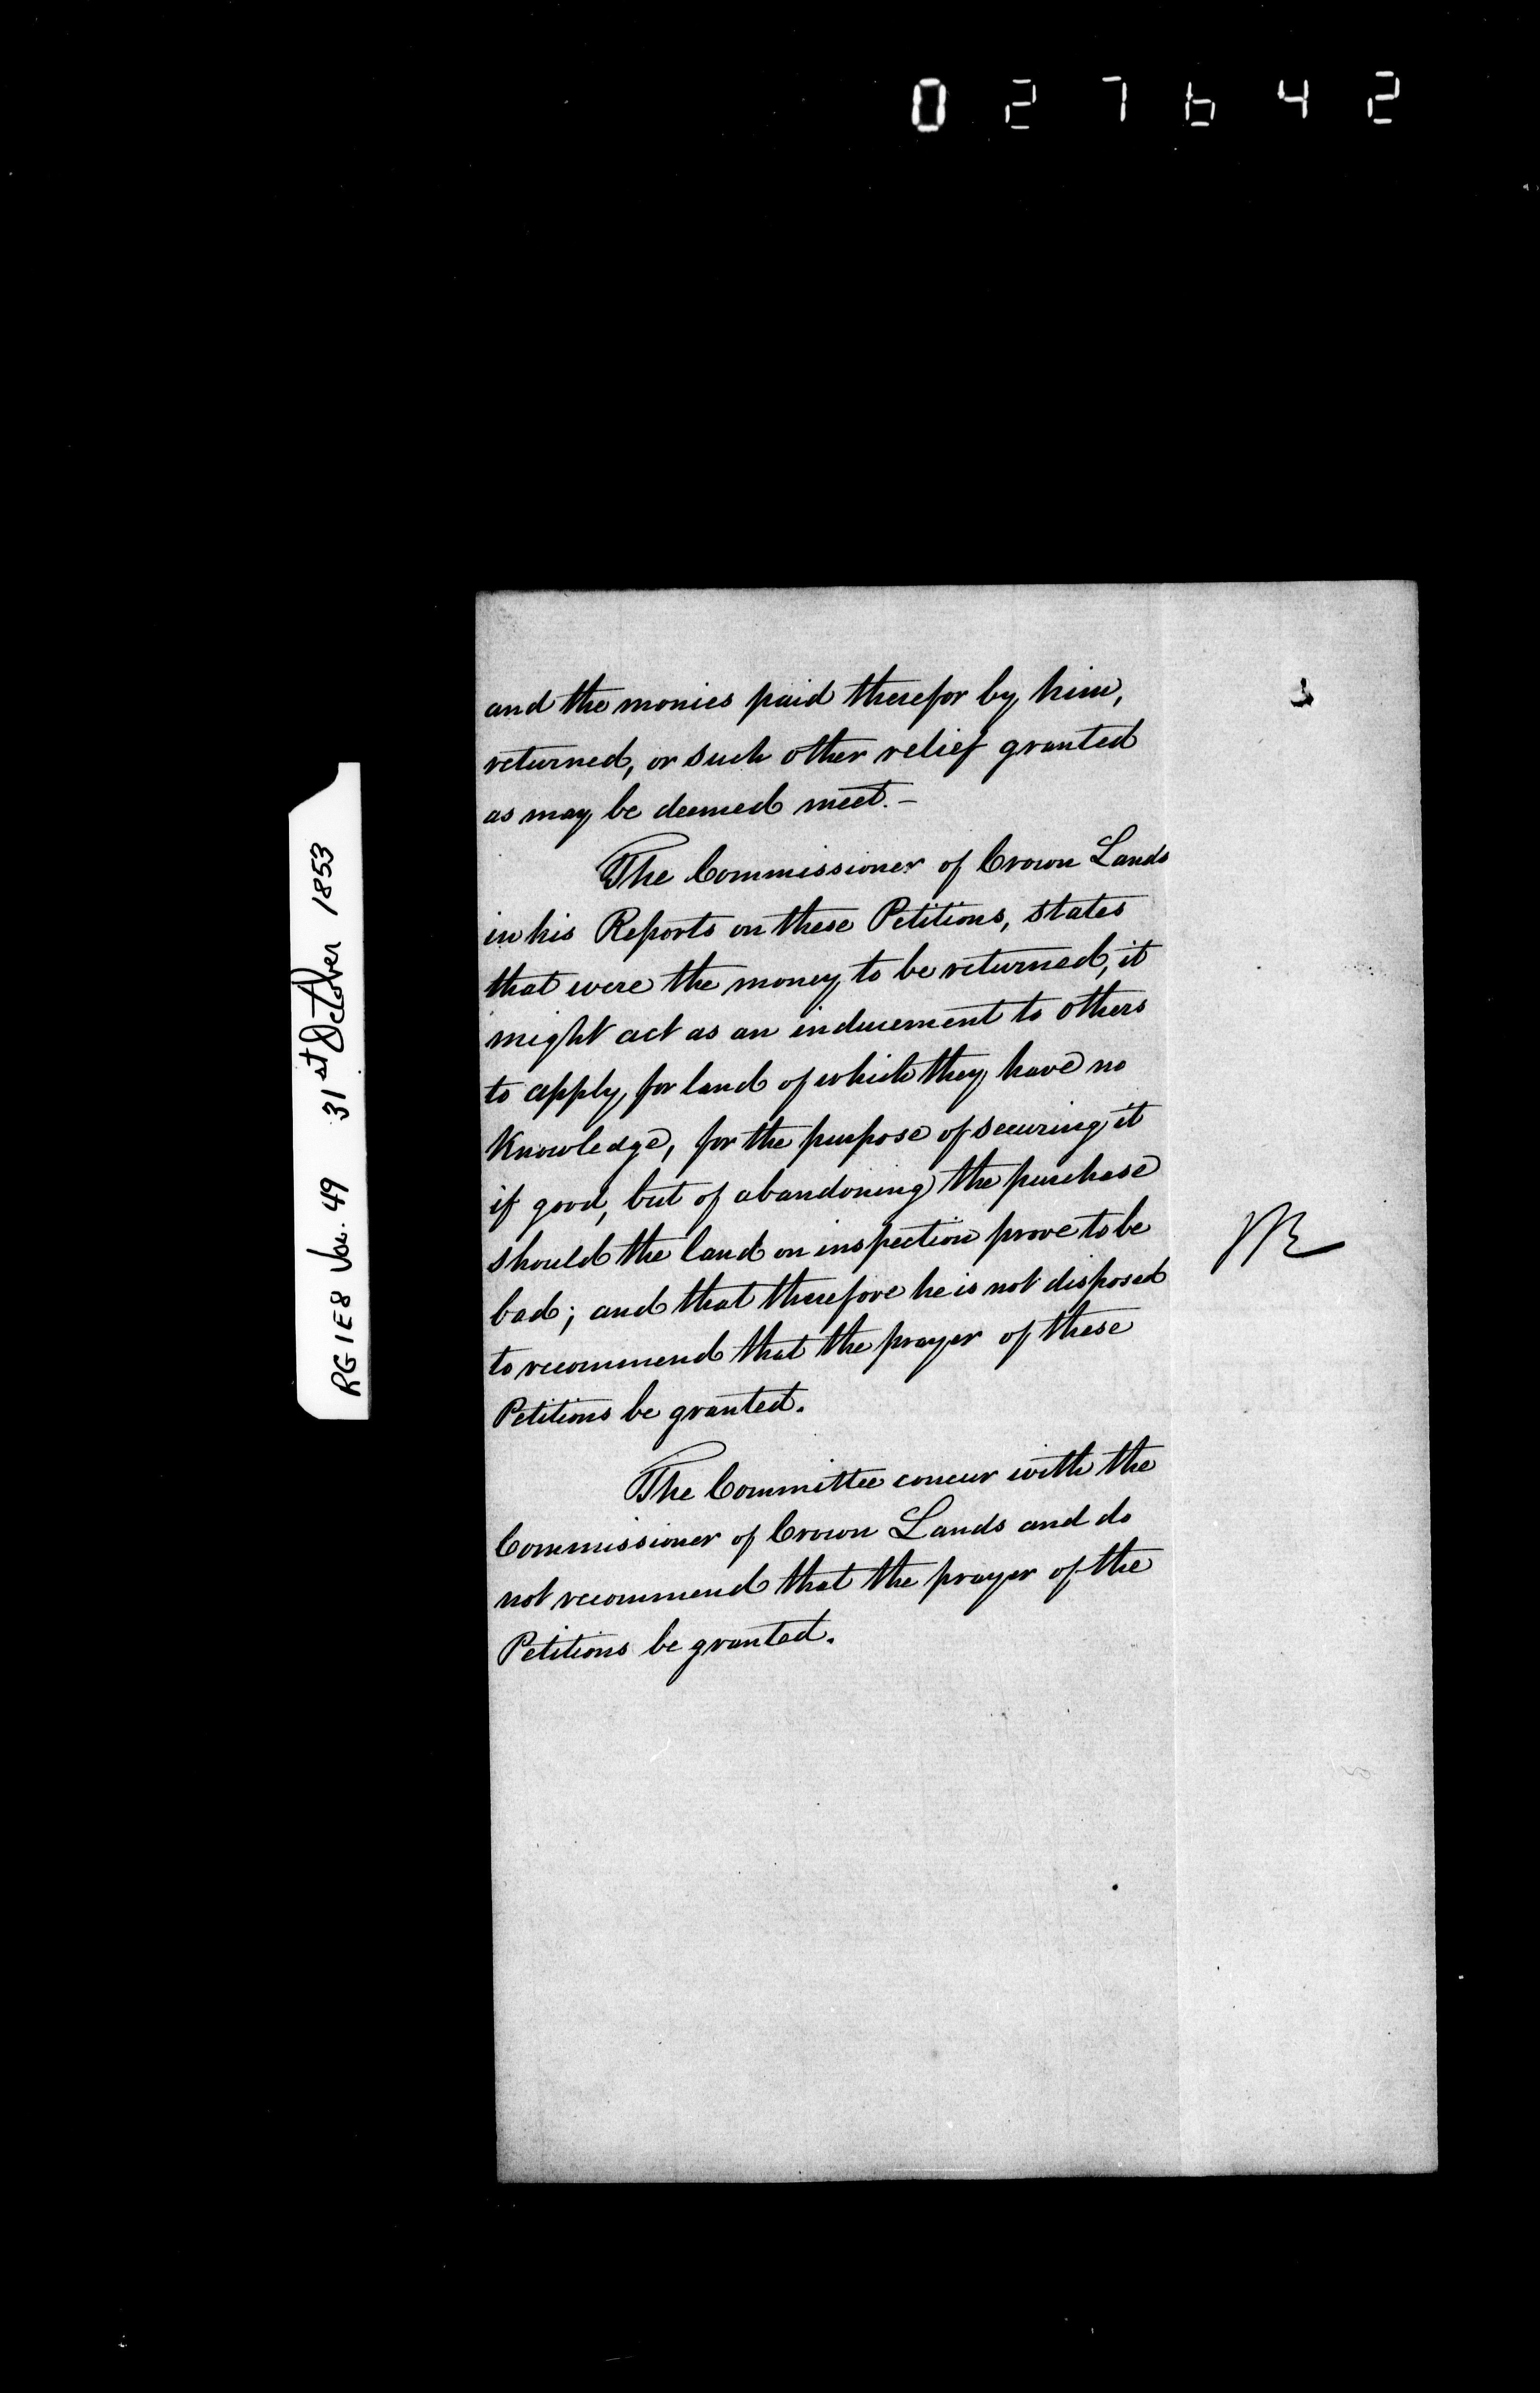 027642
RG 1 E8 Vol. 49 31st October 1853
and the monies paid therefor by him,
returned, or such other relief granted
as may be deemed meet. -
The Commissioner of Crown Lands
in his Reports on these Petitions, states
that were the money to be returned, it
might act as an inducement to others
to apply for land of which they have no
Knowledge, for the purpose of securing it
if good, but of abandoning the purchase
should the land on inspection prove to be
bad; and that therefore he is not disposed
to recommend that the prayer of these
Petitions be granted.
The Committee concur with the
Commissioner of Crown Lands and do
not recommend that the prayer of the
Petitions be granted.